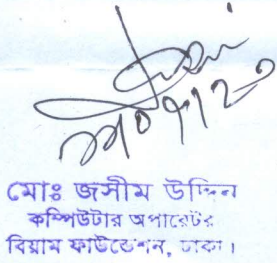 মোঃ জসীম উদ্দিন
কম্পিউটার অপারেটর
বিয়াম ফাউন্ডেশন, ঢাকা।